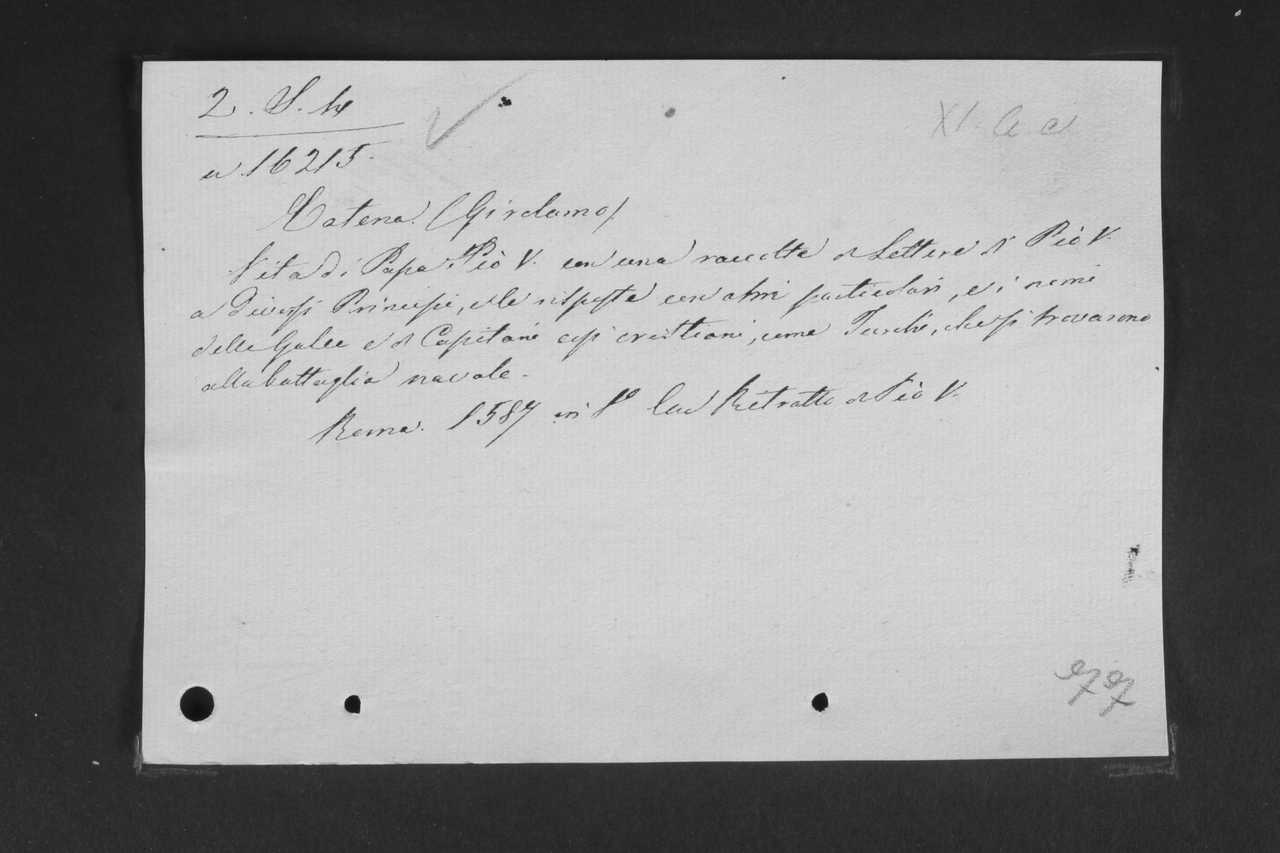 2. S. 4
n. 16215.
XI. C. a
Catena. (Girolamo)
Vita di Papa Piò V. con una raccolta di Lettere di Piò V.
a diversi Principi, e le risposte con altri particolari, e i nomi
delle Galee e di Capitani così cristiani, come Turchi, che si trovarono
alla battaglia navale.
Roma. 1587 in 8º Col Ritratto di Piò V.